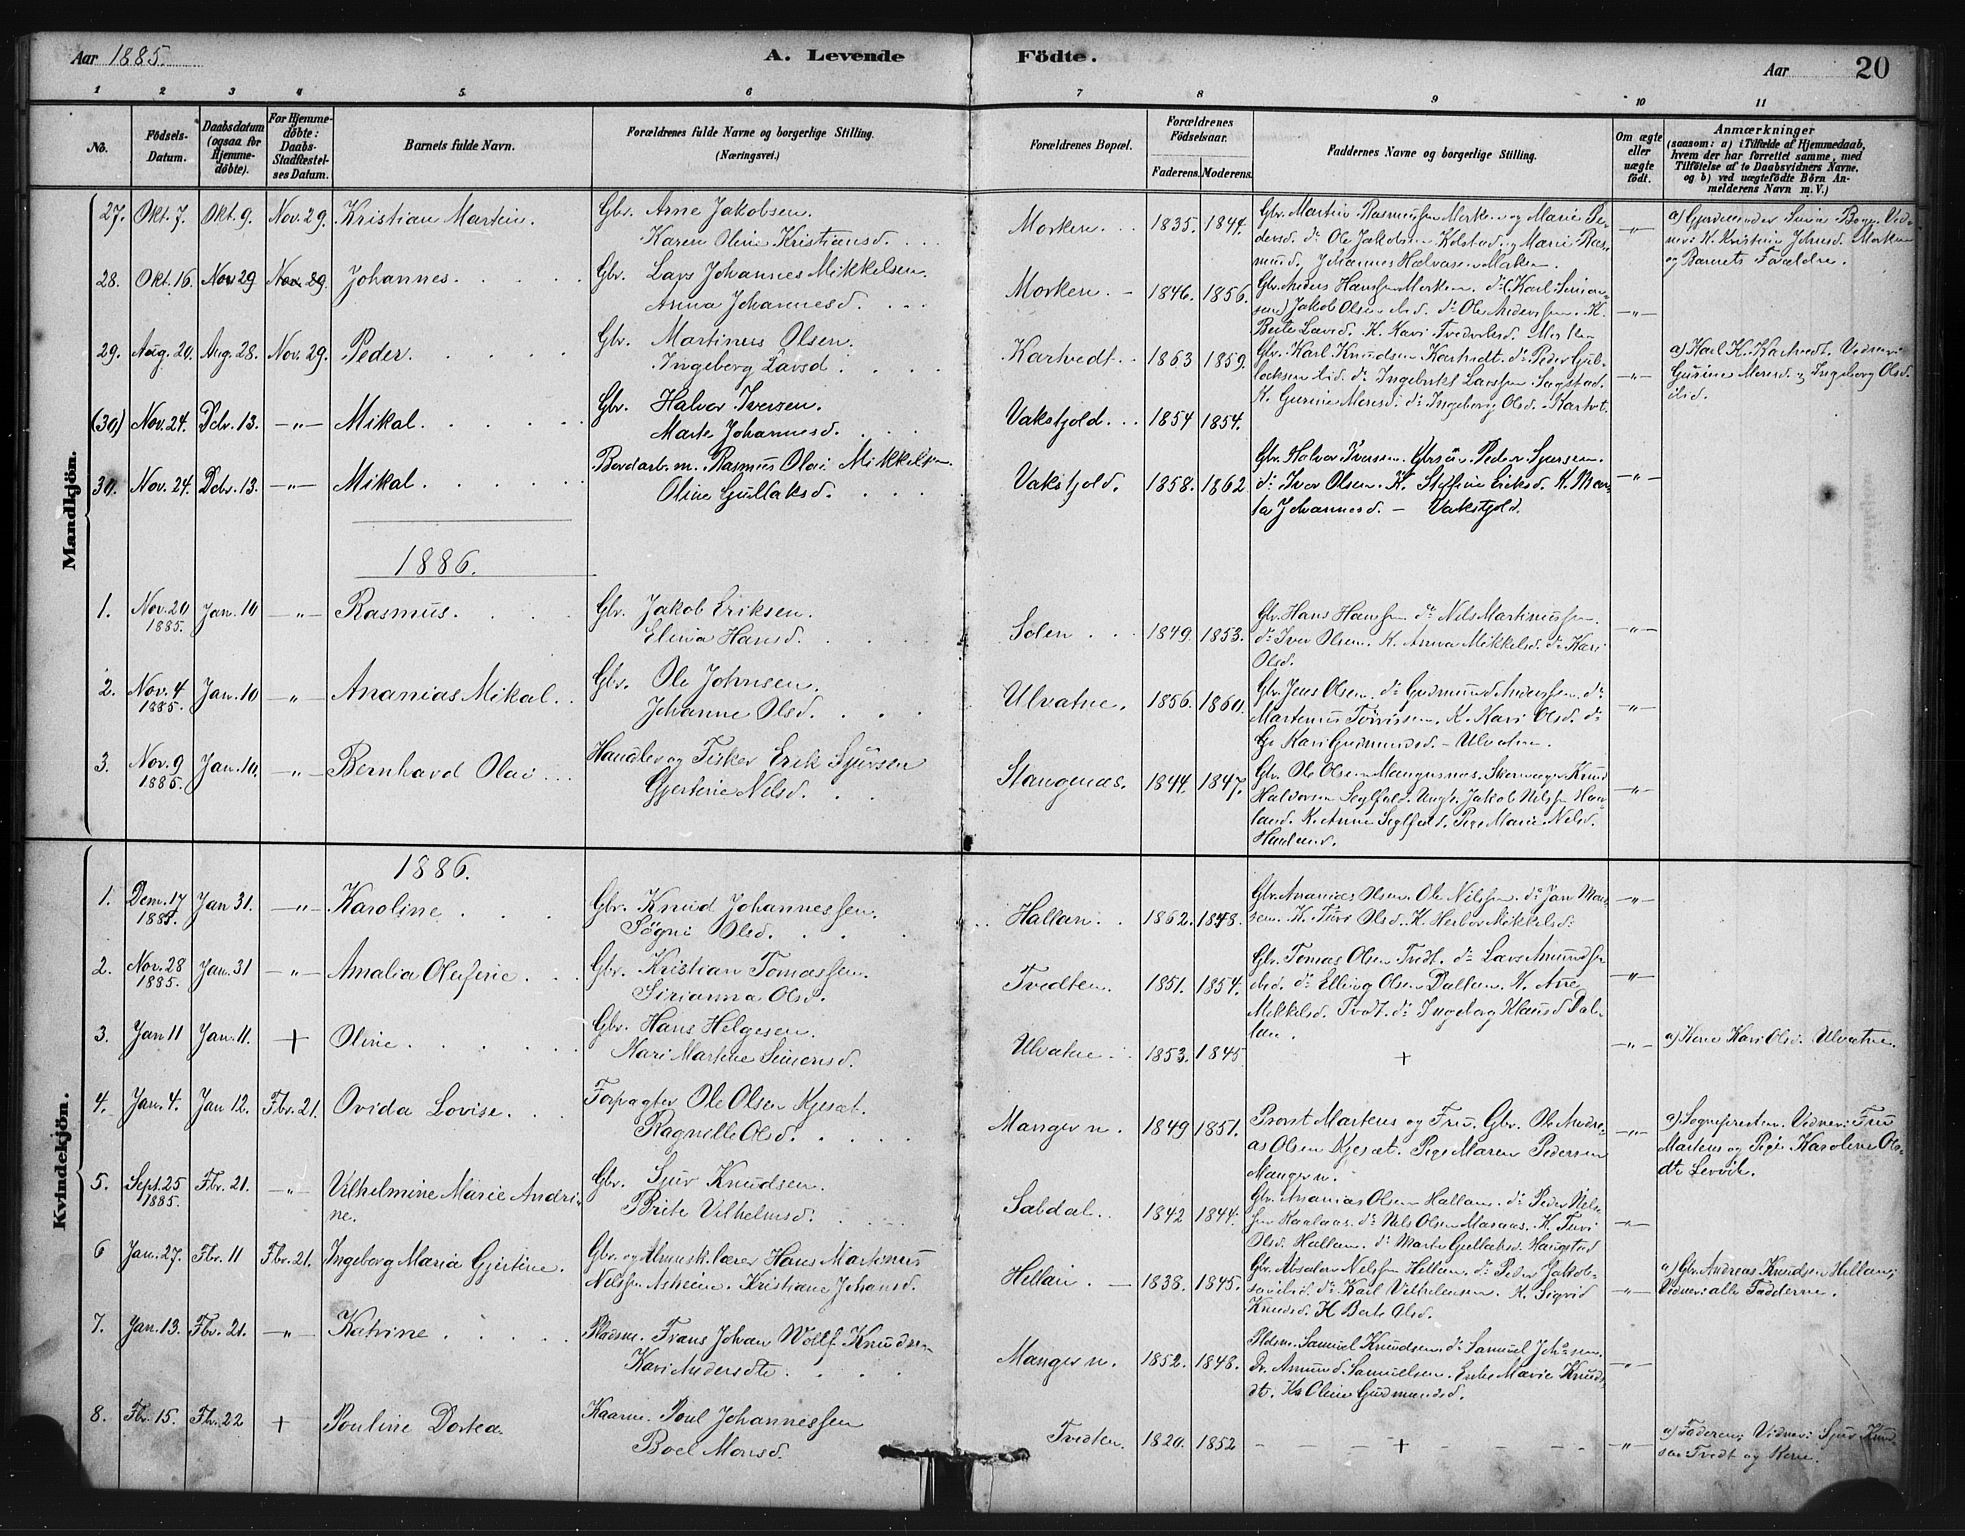 Aar 1885.
A. Levende Födte.
Aar 20
1 2 3 4 5. 6 7 8 9 10 11
No.
Födsels-Datum.
Daabsdatum (ogsaa for Hjemmedöbte).
For Hjemmedöbte: Daabs-Stadfæstelses Datum.
Barnets fulde Navn.
Forældrenes fulde Navne og borgerlige Stilling. (Næringsvei.)
Forældrenes Bopæl.
Forældrenes Födselsaar.
Faderens. Moderens.
Faddernes Navne og borgerlige Stilling.
Om ægte eller uægte födt.
Anmærkninger
(saasom: a) i Tilfælde af Hjemmedaab,
hvem der har forrettet samme, med
Tilföielse af to Daabsvidners Navne.
og b) ved uægtefödte Börn Anmelderens Navn m. V.)
Mandkjön.
27. Okt. 7. Okt. 9. Nov. 29. Kristian Martin. Gbr. Arne Jakobsen.
Karen Oline Kristiansd.
Morken. 1835. 1844. Gbr. Martin Rasmussen Morken og Marie Pedersd. do Ole Jakobsen Kolstad, Marie Rasmusd. Johannes Halvorsen Morken. -"-
28. Okt. 16. Nov 29 Nov. 29. Johannes. Gbr. Lars Johannes Mikkelsen.
Anna Johannesd.
Morken. 1846. 1856. Gbr. Anders Hanssen Morken. do (Karl Simonsen) Jakob Olsen ibid. do Ole Anderssen. K.
Berte Larsd. K. Kari -"-
29. Aug. 20. Aug. 28. Nov. 29. Peder. Gbr. Martinus Olsen.
Ingeborg Larsd.
Kartvedt. 1863 1859. Gbr. Karl Knudsen Kartvedt. do Peder Gullaksen ibid. do Ingebrikt Larssen Sagstad.
K. Gurine Monsd. do Ingeborg Olsd. Kartvt. -"- a) Karl K. Kartvedt. Vidner:
Gurine Monsd. og Ingeborg Olsd.
ibid.
(30) Nov. 24. Dcbr. 13. -"- Mikal. Gbr. Halvor Iversen.
Marte Johannesd.
Vakstjold. 1854 1854.
30. Nov. 24. Dcbr. 13. -"- Mikal. Bordarb. m. Rasmus Olai Mikkelsen.
Oline Gullaksd.
Vakstjold. 1858. 1862 Gbr. Halvor Iversen. Gbrsön Peder Sjursen.
do Iver Olsen. K. Steffine Eriksd. K. Marta Johannesd. - Vakstjold. -"-
1886.
1. Nov. 20 1885. Jan. 10 -"- Rasmus. Gbr. Jakob Eriksen.
Elina Hansd.
Solen. 1849. 1853. Gbr. Hans Hanssen do Nils Martinussen.
do Iver Olsen. K. Anna Mikkelsd. do Kari
Olsd. -"-
2. Nov. 4 1885. Jan. 10 -"- Ananias Mikal. Gbr. Ole Johnsen.
Johanne Olsd.
Ulvatne. 1856. 1860. Gbr. Jens Olsen. do Gudmund Anderssen. do
Martinus Torrissen. K. Kari Olsd. do
Kari Gudmundsd. - Ulvatne. -"-
3. Nov. 9 1885. Jan. 10. -"- Bernhard Olai Handler og Fisker Erik Sjursen
Gjertine Nilsd.
Stangenæs. 1844. 1847. Gbr. Ole Olsen Mangersnæs. Skomager Knud
Halvorsen Seglfald. Ungk. Jakob Nilssen Hauland. K. Anne Seglfald. Pige Marie Nilsd.
Hauland. -"-
Kvindekjön.
1886.
1. Decm. 17 1885. Jan 31. -"- Karoline Gbr. Knud Johannessen.
Søgni Olsd.
Hallan. 1862. 1848. Gbr. Ananias Olsen. Ole Nilssen. do Jan Monsen. K. Turi Olsd. K. Herbor Mikkelsd. -"-
2. Nov. 28 1885. Jan. 31 -"- Amalia Olufine Gbr. Kristian Tomassen.
Sirianna Olsd.
Tvedten. 1851. 1854. Gbr. Tomas Olsen Tvedt. do Lars Amundsen
ibid. do Elling Olsen Dallan. K. Ane
Mikkelsd. Tvedt. do Ingeborg Klausd Dallan. -"-
3. Jan 11 Jan. 11. + Oline. Gbr. Hans Helgesen.
Kari Martine Simonsd.
Ulvatne 1853. 1845 + -"- a) Kone Kari Olsd. Ulvatne.
4. Jan. 4. Jan 12. Fbr. 21. Ovida Lovise. Forpagter Ole Olsen Kjesæt.
Ragnille Olsd.
Manger n. 1849 1851. Provst Martens og Fru. Gbr. Ole Andreas Olsen Kjesæt. Pige Maren Pedersen
Manger n. -"- a) Sognepresten. Vidner: Fru
Martens og Pige Karoline Olsdt.
5. Sept. 25 1885. Fbr. 21. -"- Vilhelmine Marie Andrine. Gbr. Sjur Knudsen.
Brite Vilhelmsd.
Sabdal. 1842 1844. Gbr. Ananias Olsen Hallan. do Peder Nilssen Kaalaas. do Nils Olsen Maraas. K. Turi
Olsd. Hallan. do Marte Gullaksd. Haugstad -"-
6 Jan. 27. Fbr. 11 Fbr. 21. Ingeborg Maria Gjertine. Gbr. og Almuesk. lærer Hans Martinus
Nilssen Askeim. Kristiane Johansd.
Hellan. 1838. 1845. Gbr. Absalon Nilssen Hellan. do Peder Jakobsen ibid. do Karl Vilhelmsen. K. Sigrid
Knudsd. K. Berte Olsd. -"- a) Gbr. Andreas Knudsen Hellan;
Vidner: alle Fadderne.
7. Jan. 13. Fbr. 21. -"- Katrine Pladsm. Frans Johan Wolf Knudsen
Kari Andersdt.
Manger n. 1852. 1848. Pldsm. Samuel Knudsen. do Samuel Johnsen.
Dr. Amund Samuelsen. Enke Marie Knudsdt. K. Oline Gudmundsd. -"-
8. Fbr. 15. Fbr. 22 + Pouline Dortea. Kaarm. Poul Johannessen
Boel Monsd.
Tvedten. 1820. 1852 + -"- a) Faderen; Vidner: Sjur Knudsen Tvedt og Kone.